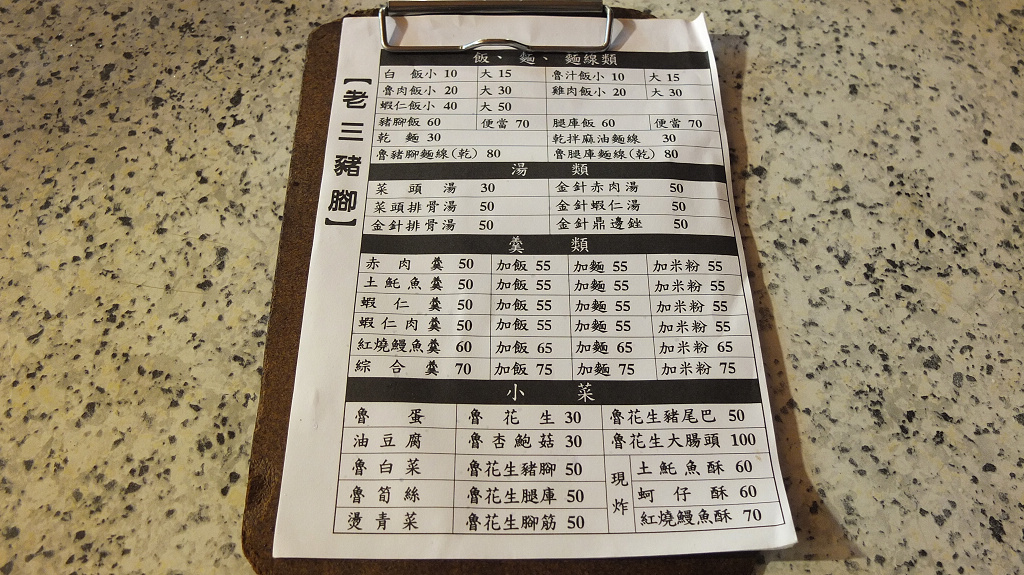 【老三豬腳】
飯、麵、麵線類
白飯小 10 大 15 魯汁飯小 10 大 15
魯肉飯小 20 大 30 雞肉飯小 20 大 30
蝦仁飯小 40 大 50
豬腳飯 60 便當 70 腿庫飯 60 便當 70
乾麵 30 乾拌麻油麵線 30
魯豬腳麵線(乾) 80 魯腿庫麵線(乾) 80
湯類
菜頭湯 30 金針赤肉湯 50
菜頭排骨湯 50 金針蝦仁湯 50
金針排骨湯 50 金針鼎邊銼 50
羹類
赤肉羹 50 加飯 55 加麵 55 加米粉 55
土魠魚羹 50 加飯 55 加麵 55 加米粉 55
蝦仁羹 50 加飯 55 加麵 55 加米粉 55
蝦仁肉羹 50 加飯 55 加麵 55 加米粉 55
紅燒鰻魚羹 60 加飯 65 加麵 65 加米粉 65
綜合羹 70 加飯 75 加麵 75 加米粉 75
小菜
魯蛋 魯花生 30 魯花生豬尾巴 50
油豆腐 魯杏鮑菇 30 魯花生大腸頭 100
魯白菜 魯花生豬腳 50 現炸 土魠魚酥 60
魯筍絲 魯花生腿庫 50 蚵仔酥 60
燙青菜 魯花生腳筋 50 紅燒鰻魚酥 70